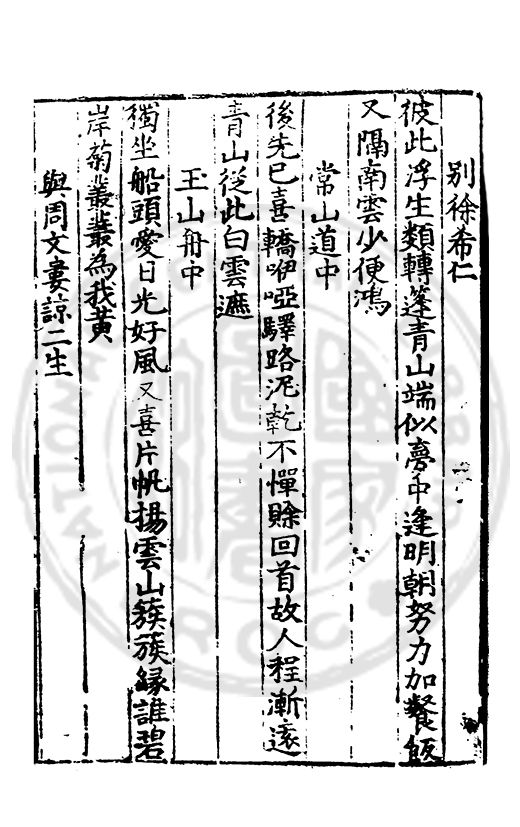 別徐希仁
彼此浮生類轉蓬青山端似夢中逢明朝努力加餐飯
又隔南雲少便鴻
常山道中
後先已喜轎咿啞驛路泥乾不憚賖回首故人程漸遠
青山從此白雲遮
玉山舟中
獨坐船頭愛日光好風又喜片帆揚雲山簇簇緣誰碧
岸菊叢叢為我黃
與周文婁諒二生